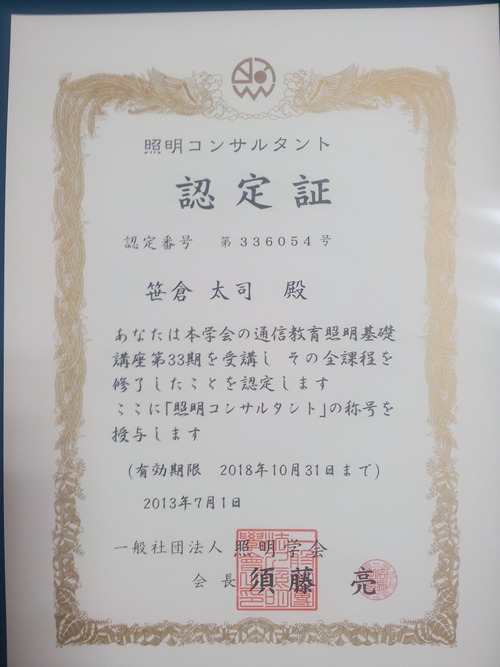 照明コンサルタント
認定証
認定番号 第336054号
笹倉 太司 殿
あなたは本学会の通信教育照明基礎
講座第33期を受講し その全課程を
修了したことを認定します
ここに「照明コンサルタント」の称号を
授与します
(有効期限 2018年10月31日まで)
2013年7月1日
一般社団法人 照明学会
会長 須藤 亮